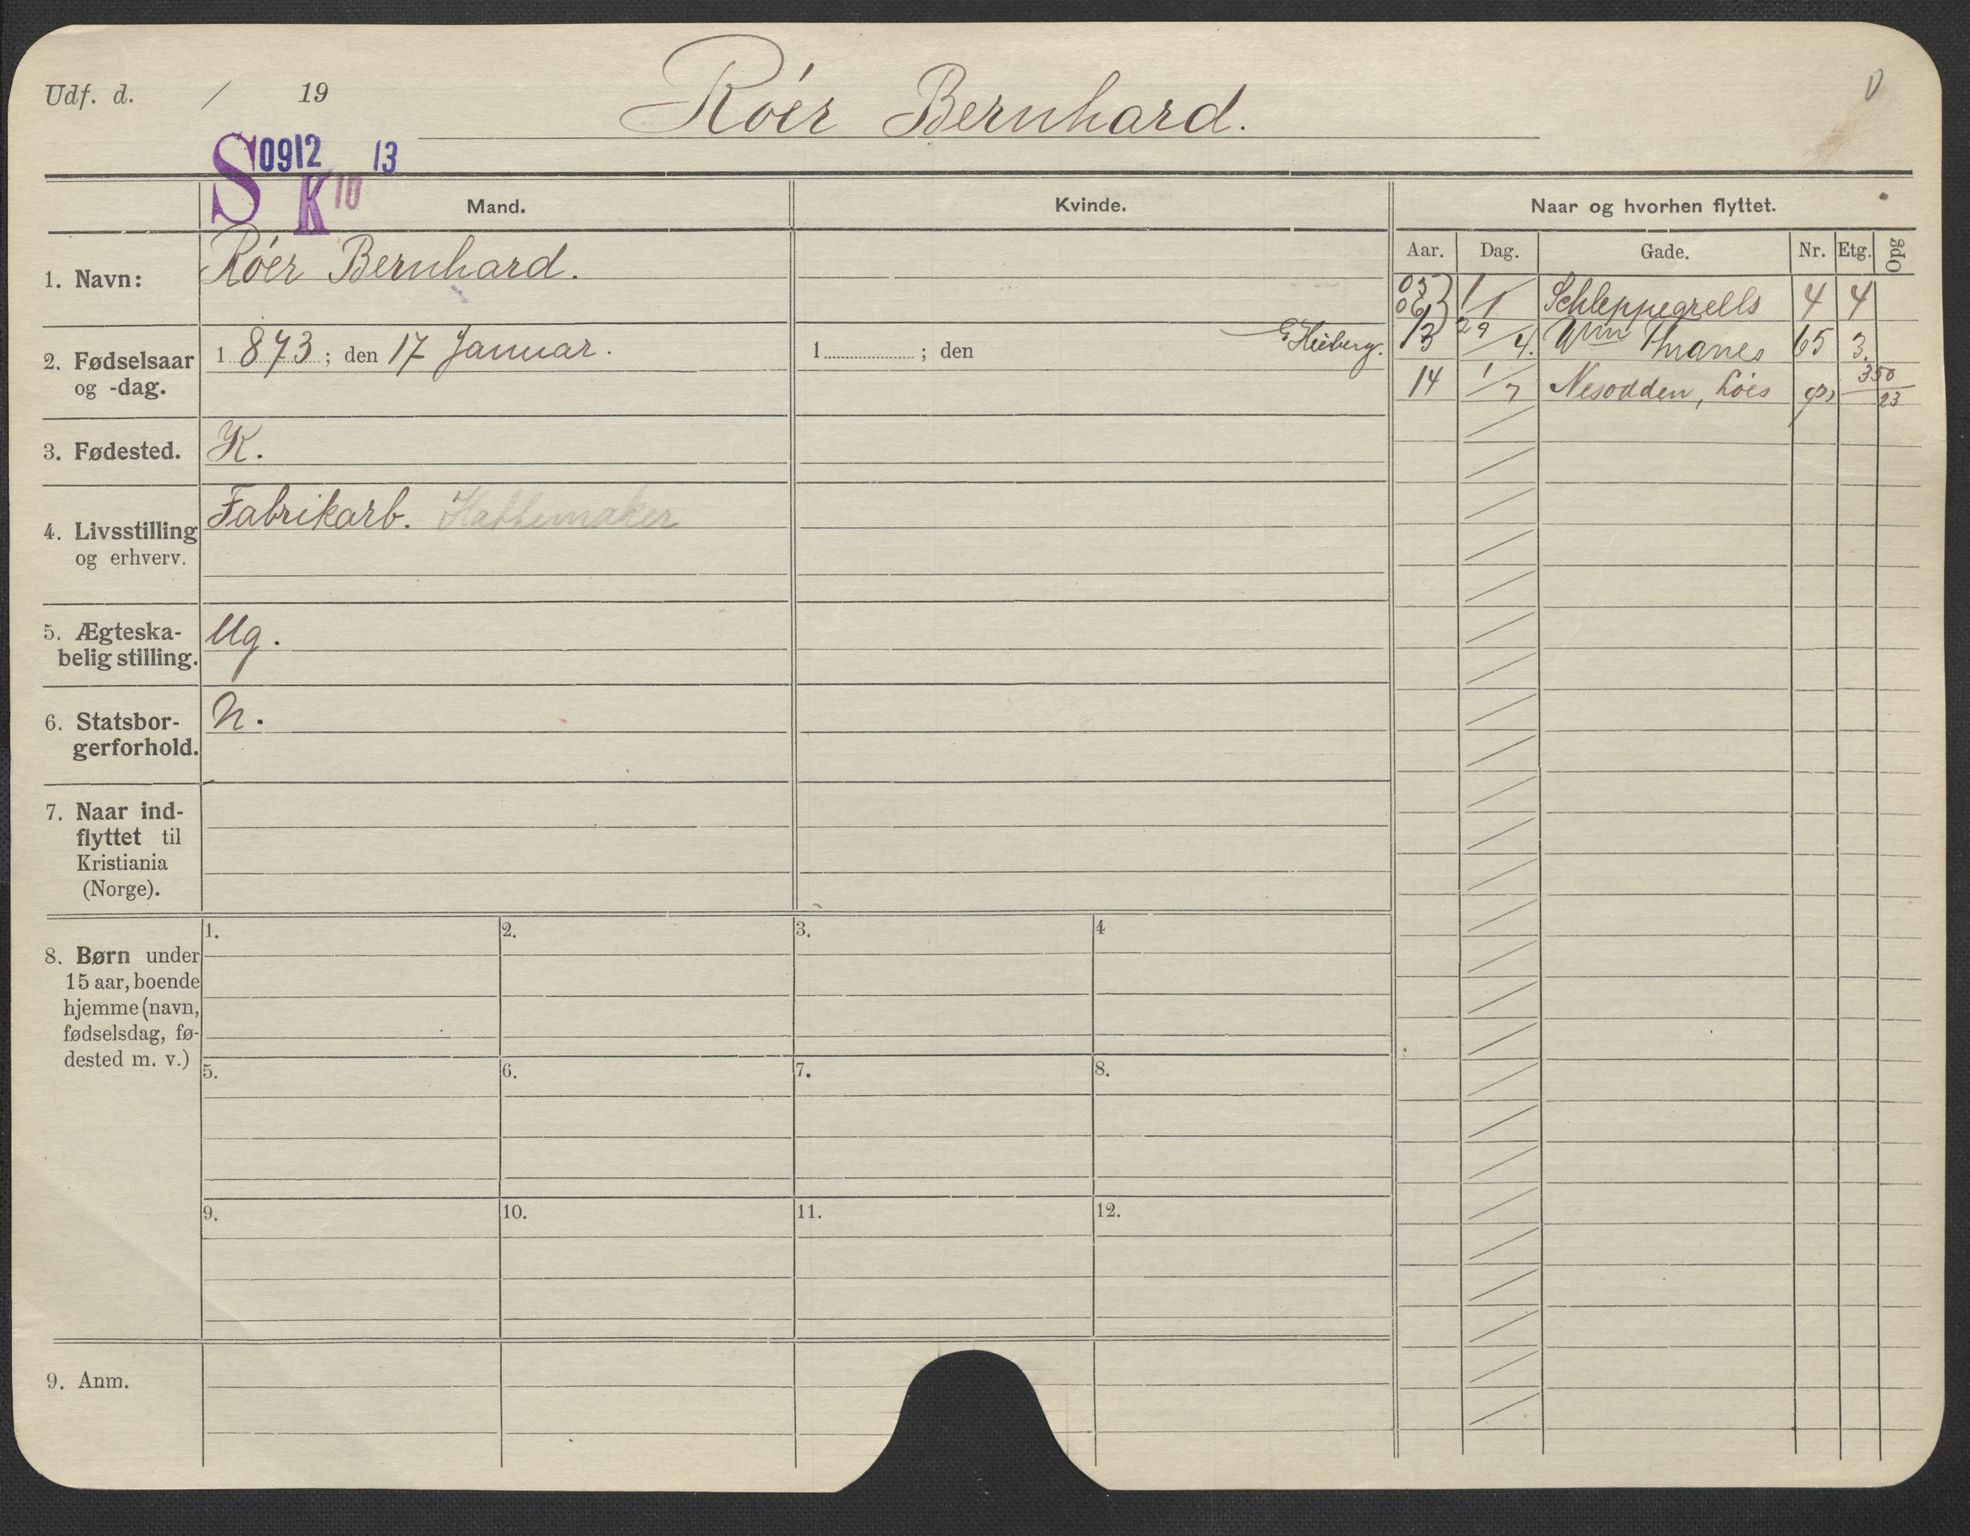 Udf. d. / 19
Róer Bernhard.
S 0912 13
K 10
Mand.
Kvinde.
Naar og hvorhen flyttet.
Aar. Dag. Gade. Nr. Etg. Opg
1. Navn: Róer Bernhard.
05 06 1/1 Schleppegrells 4 4
2. Fødselsaar og -dag. 1 873; den 17 Januar.
1 ; den
G. Heiberg. 13 29/4. Wm Thranes 65 3.
14 1/7 Nesodden, 350/23
3. Fødested. K.
4. Livsstilling og erhverv. Fabrikarb. Hattemaker
5. Ægteska-
belig stilling. Ug.
6. Statsbor-
gerforhold. N.
7. Naar ind-
flyttet til
Kristiania
(Norge).
8. Børn under
15 aar, boende
hjemme (navn,
fødselsdag, fø-
dested m. v.)
1. 2. 3. 4
5. 6. 7. 8.
9. 10. 11. 12.
9. Anm.